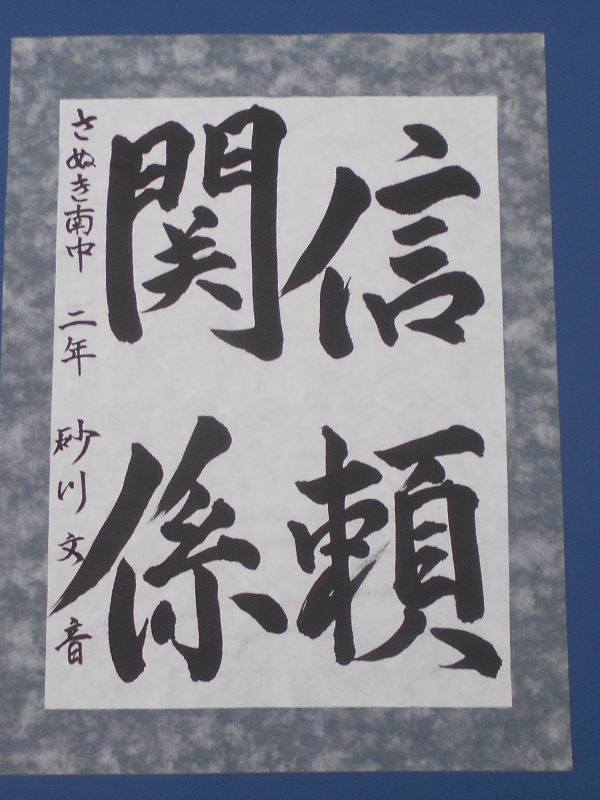 信頼
関係
さぬき南中 二年 砂川文音